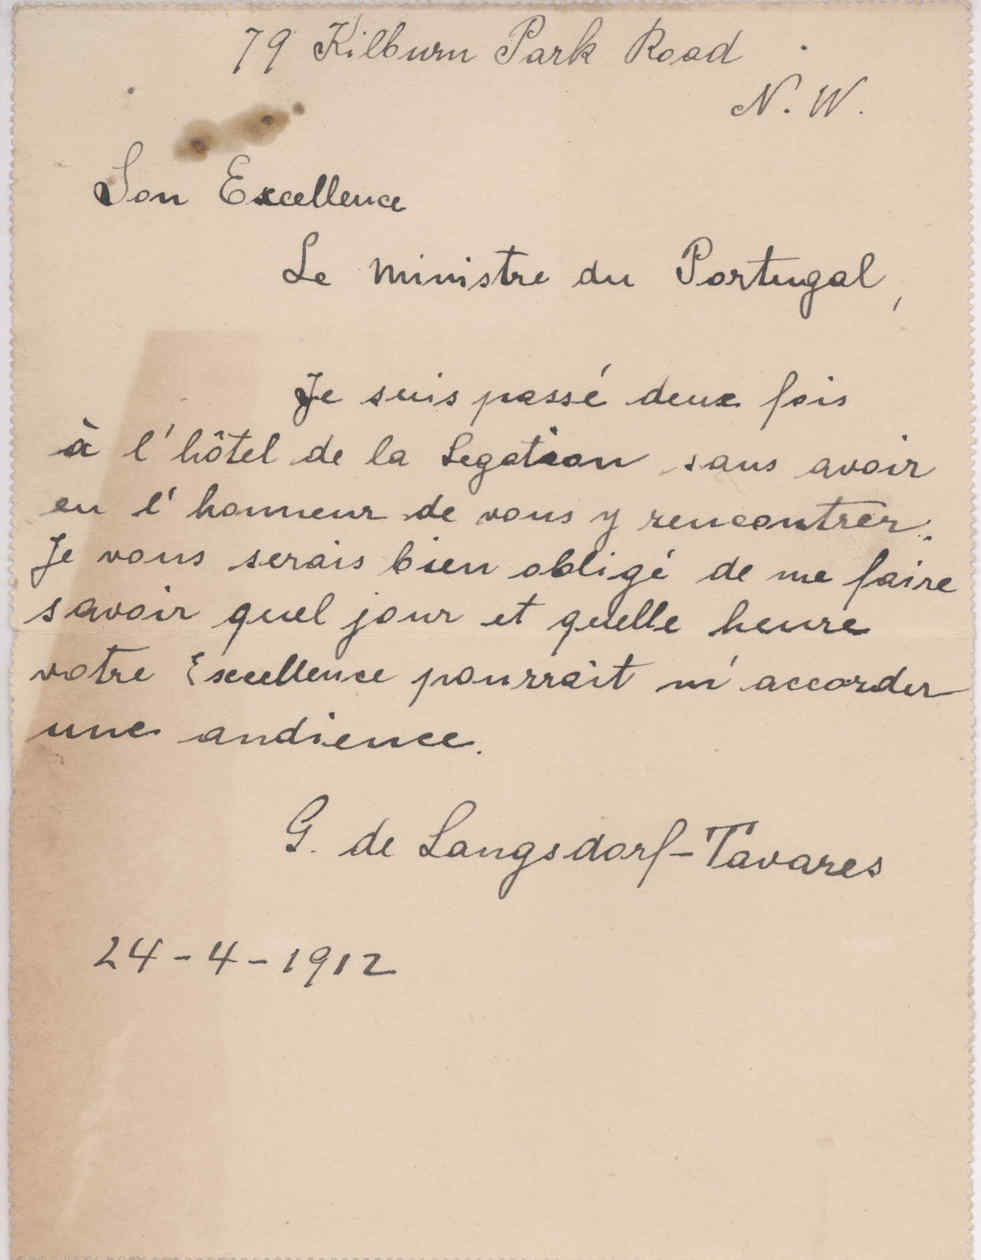 79 Kilburn Park Road
N. W.
Son Excellence
Le Ministre du Portugal,
Je suis passé deux fois
à l'hôtel de la Legation sans avoir
eu l'honneur de vous y rencontrer.
Je vous serais bien obligé de me faire
savoir quel jour et quelle heure
votre Excellence pourrait m'accorder
une audience.
G. de Langsdorf-Tavares
24-4-1912